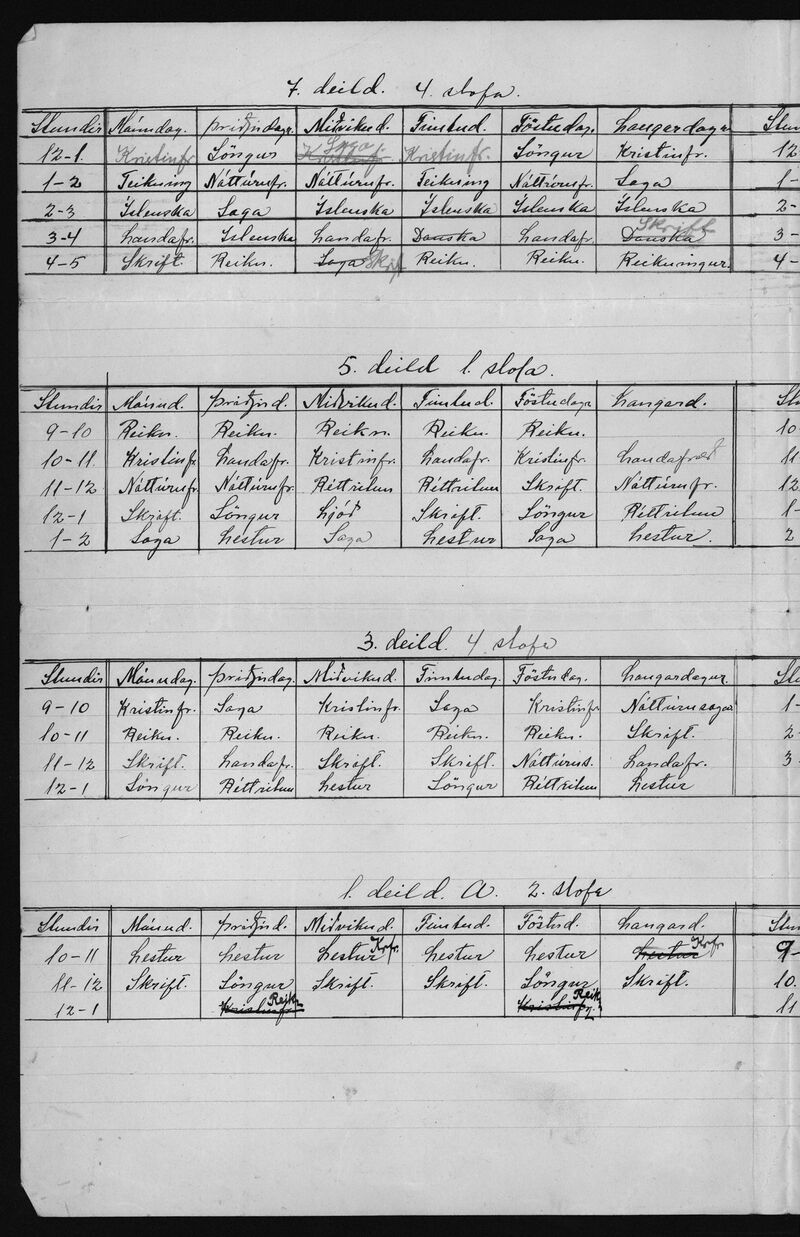 7. deild. 4. stofa.
Stundir Mánudag. Þriðjudagr. Miðvikud. Fimtud. Föstudag. Laugardagr Stun
12-1. Kristinfr. Söngur Kristinfr. Saga Kristinfr. Söngur Kristinfr. 12
1-2 Teikning Náttúrufr. Náttúrufr. Teikning Náttúrufr. Saga 1-
2-3 Íslenska Saga Íslenska Íslenska Íslenska Íslenska 2-
3-4 Landafr. Íslenska Landafr. Danska Landafr. Danska Skrift 3-
4-5 Skrift. Reikn. Saga Skrift Reikn. Reikn. Reikningur. 4-
5. deild 1. stofa.
Stundir Mánud. Þriðjud. Miðvikud. Fimtud. Föstudagr Laugard. Stun
9-10 Reikn. Reikn. Reikn. Reikn. Reikn. 10-
10-11 Kristinfr. Landafr. Kristinfr. Landafr. Kristinfr. Landafræði 11
11-12 Náttúrufr Náttúrufr. Réttritun Réttritun Skrift. Náttúrufr. 12
12-1 Skrift. Söngur Ljóð Skrift. Söngur Réttritun 1-
1-2 Saga Lestur Saga Lestur Saga Lestur. 2
3. deild. 4 stofa
Stundir Mánudag. Þriðjudag. Miðvikud. Fimtudag. Föstudag. Laugardagur. Stun
9-10 Kristinfr. Saga Kristinfr. Saga Kristinfr Náttúrusaga 1-
10-11 Reikn. Reikn. Reikn. Reikn. Reikn. Skrift. 2-
11-12 Skrift. Landafr. Skrift. Skrift. Náttúrus. Landafr. 3-
12-1 Söngur Réttritun Lestur Söngur Réttritun Lestur
1. deild. A. 2. stofa
Stundir Mánud. Þriðjud. Miðvikud. Fimtud. Föstud. Laugard. Stun
10-11 Lestur Lestur Lestur Krfr. Lestur Lestur Lestur Krfr. 9-
11-12 Skrift. Söngur Skrift. Skrift. Söngur Skrift. 10.
12-1 Kristinfr Reikn. Kristinfr Reikn. 11